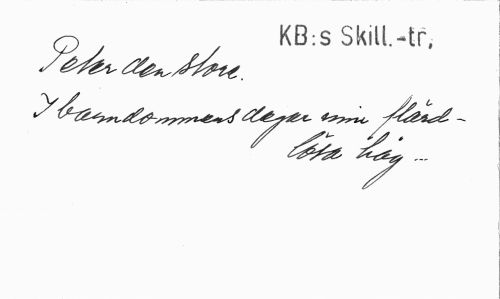 KB:s Skill.-tr,
Peter den store.
I barndommens dagar min flärd-
lösa håg...